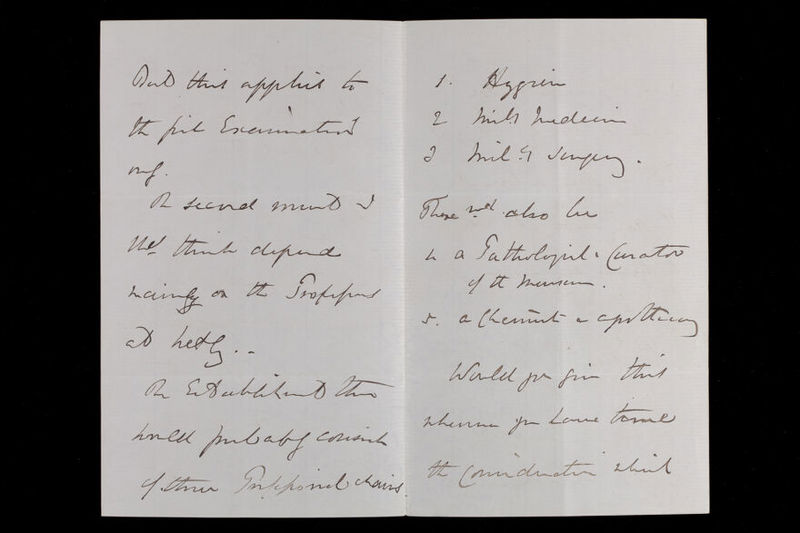 But this applies to
the first Examination
only.
The second must I
shd think depend
mainly on the Professors
at Netley. -
The Establishment there
would probably consist
of three Professional chairs.
1. Hygiene
2 Mily Medicine
3 Mily Surgery.
There wd also be
4 a Pathologist & Curator
of the Museum.
5. a Chemist & apothecary
Would you give this
whenever you have time
the consideration which